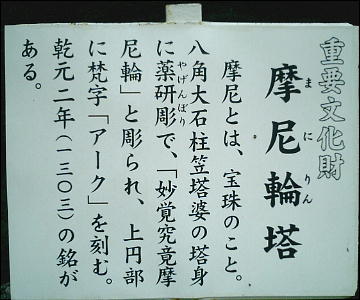 重要文化財
摩尼輪塔
まにりん
摩尼とは、宝珠のこと。
八角大石柱笠塔婆の塔身
に薬研彫で、「妙覚究竟摩
やげんぼり
尼輪」と彫られ、上円部
に梵字「アーク」を刻む。
乾元二年(一三〇三)の銘が
ある。